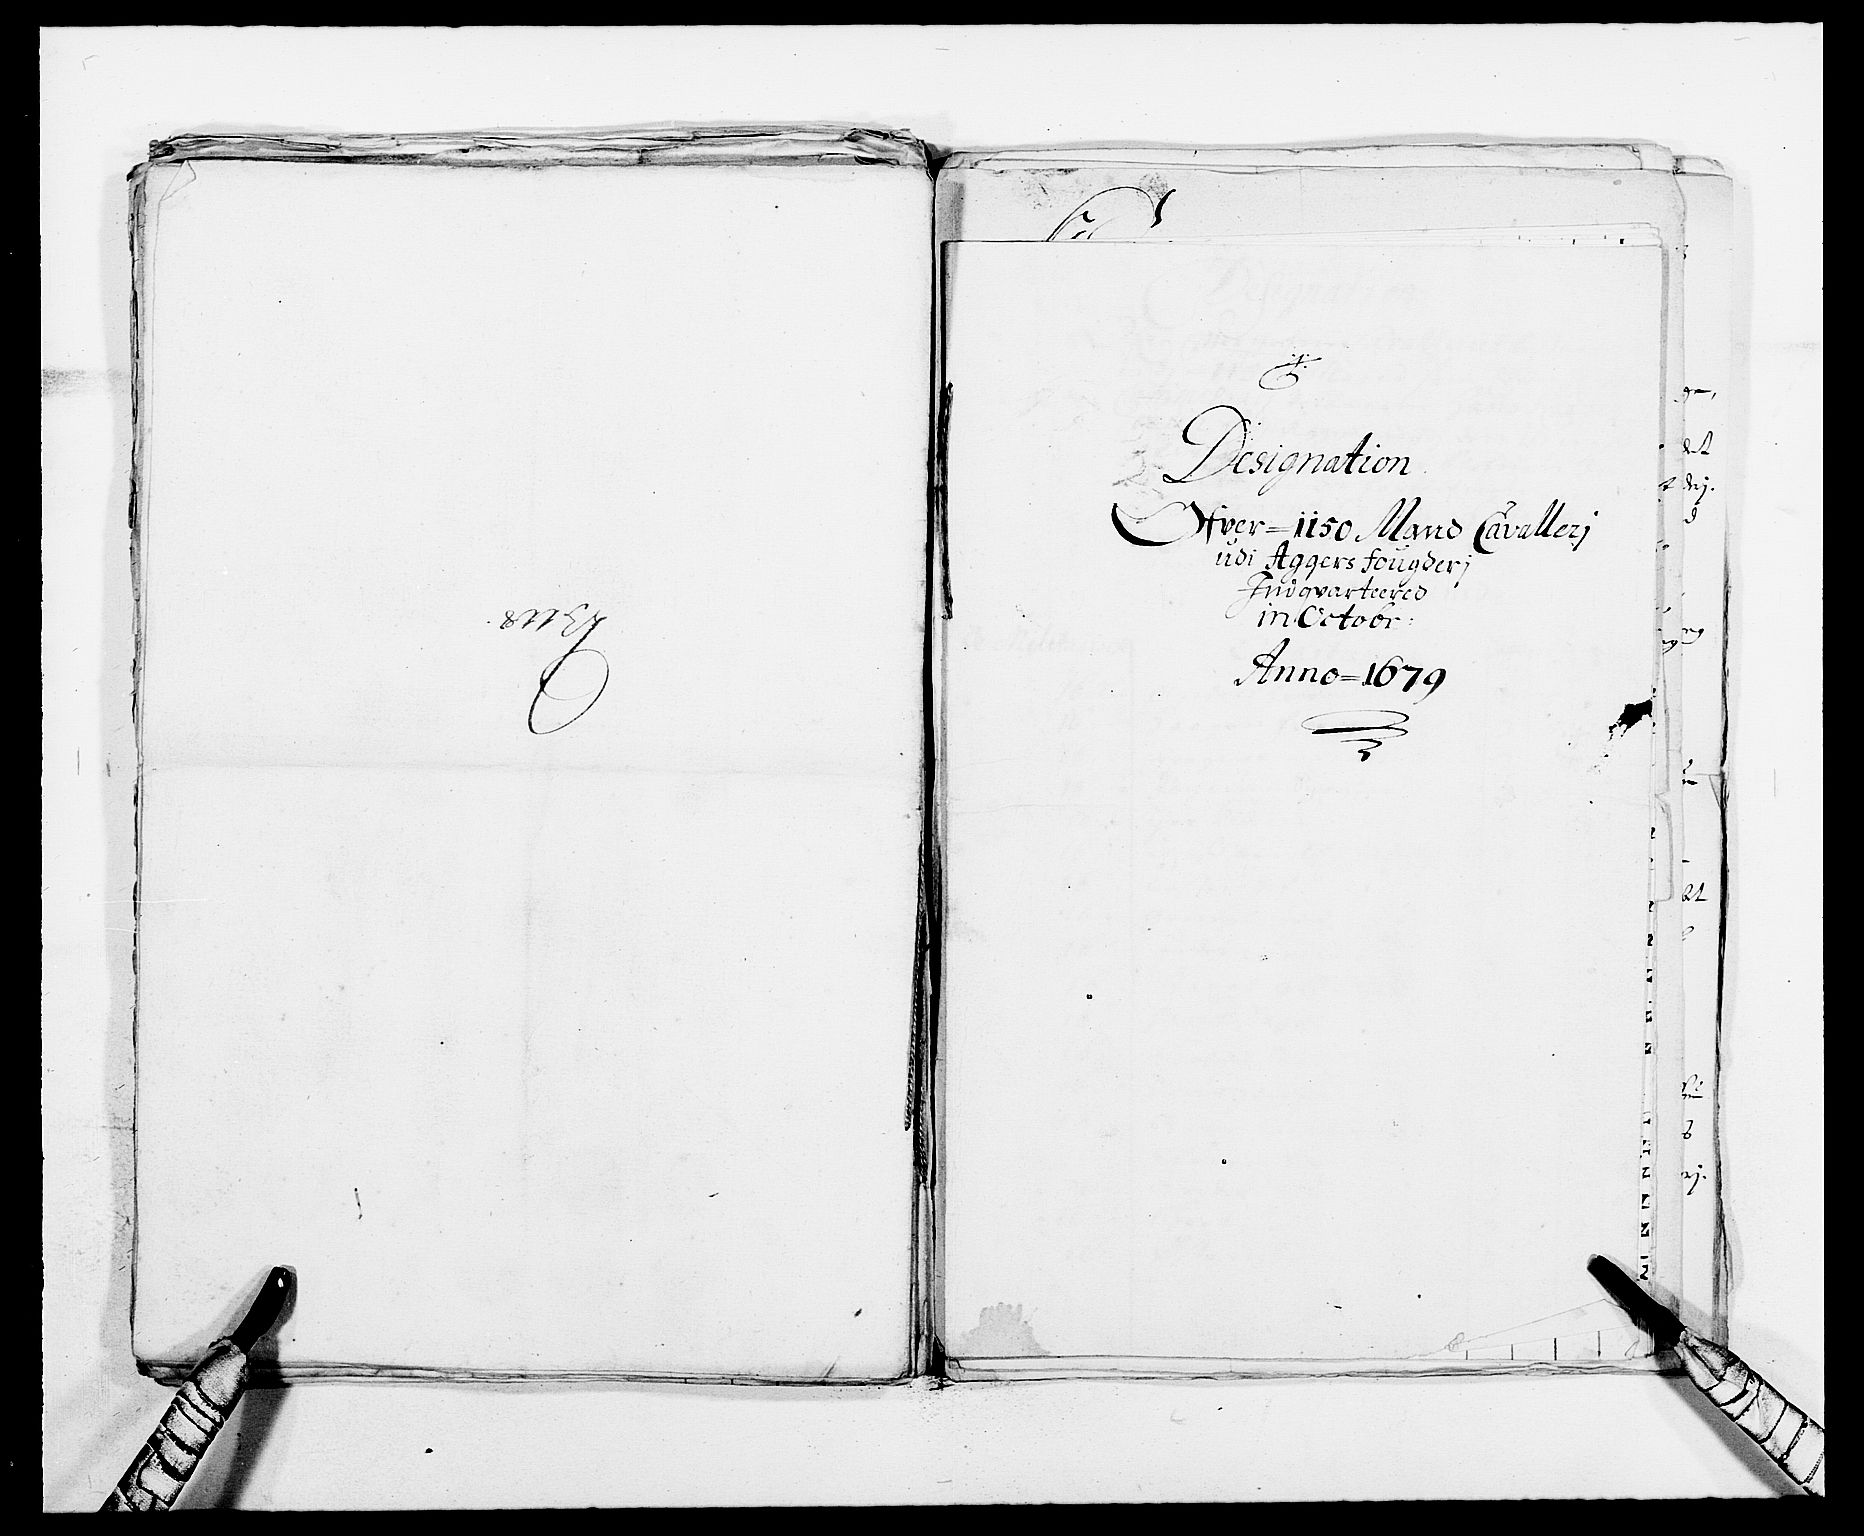 Designation
Ofver=1150 Mand Cavallerj
udi Aggers fougderj
Indqvarteered
in Octobr:
Anno=1679